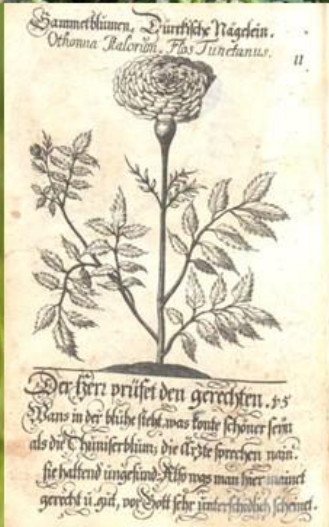 Sammetblůmen. Türckische Nägelein.
Othonna Italorum. Flos Tunetanus.
11
Der Herr prüfet den gerechten. ps
Wans in der blühe steht, was konte schöner sein
als die Thuniserblum; die Ärtzte sprechen nain.
sie haltend ungesund. Also was man hier meinet
gerecht ů. gůt, vor Gott sehr ůnterschidlich scheinet.